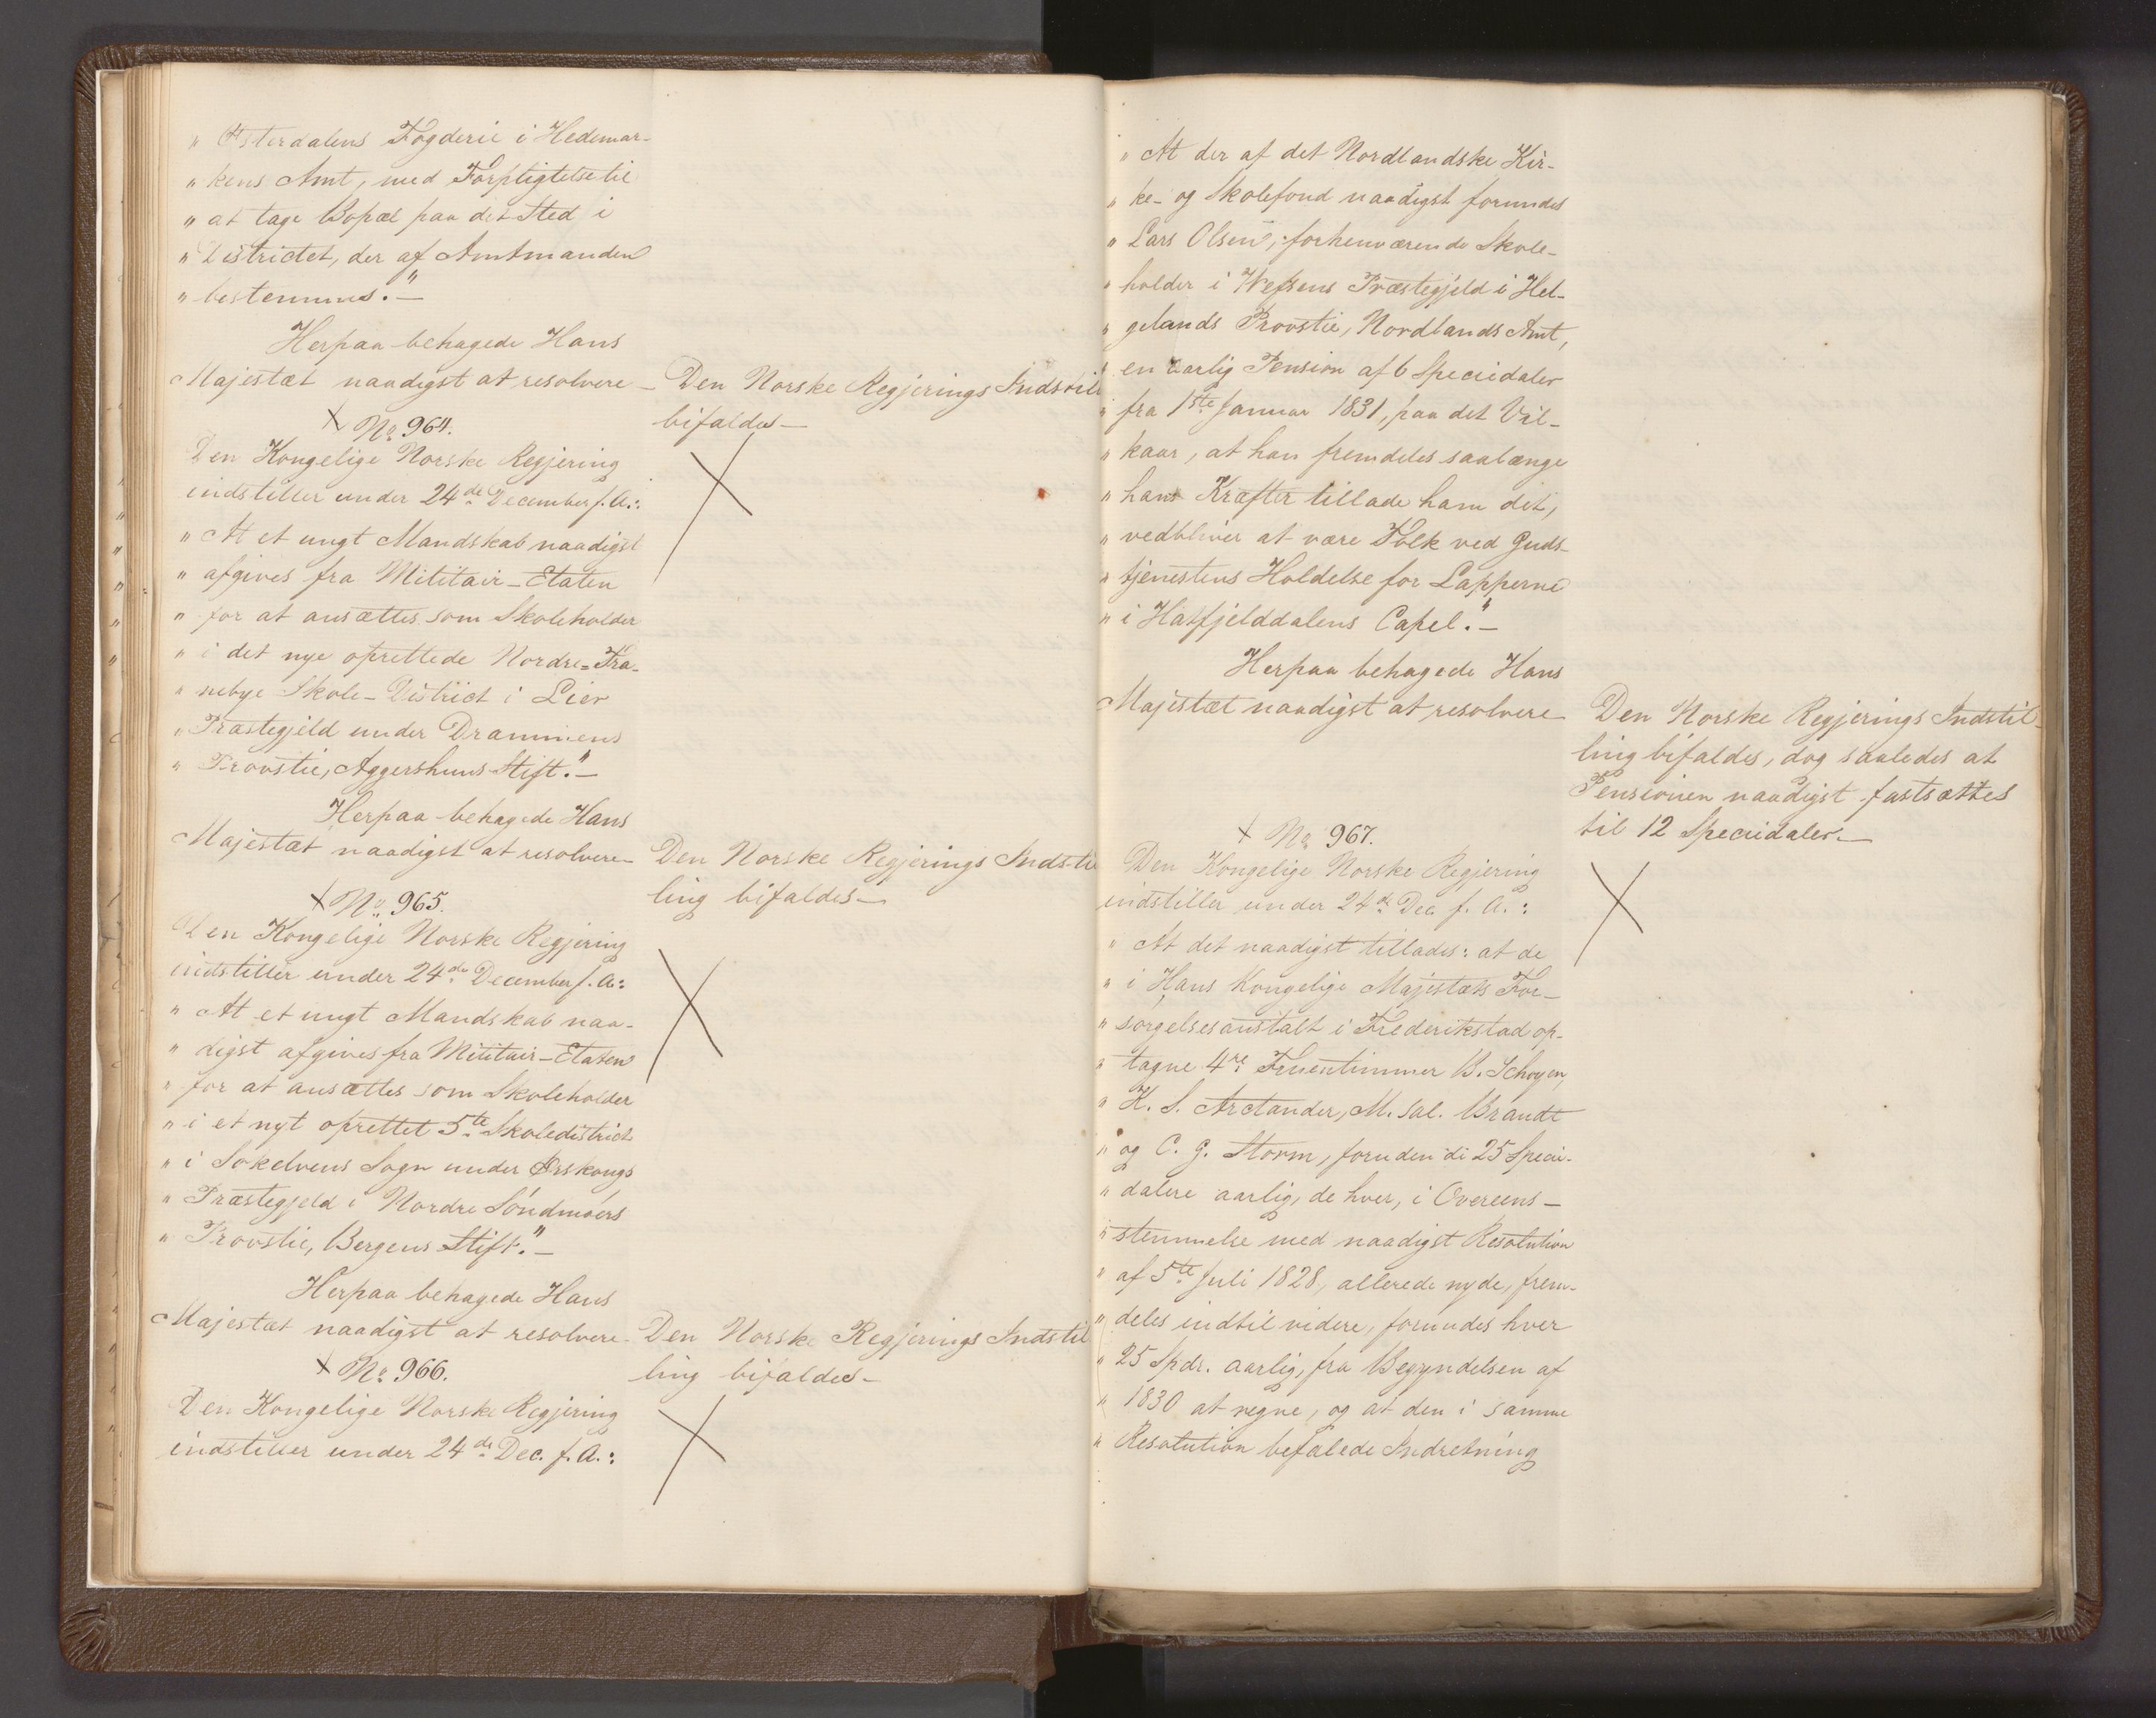 „ Østerdalens Fogderie i Hedemar-
„ kens Amt, med Forpligtelse til
„ at tage Bopæl paa det Sted i
„ Districtet, der af Amtmanden
„ bestemmes."—
Herpaa behagede Hans
Majestæt naadigst at resolvere —
Den Norske Regjerings Indstil
bifaldes —
N<sup>o</sup> 964.
Den Kongelige Norske Regjering
indstiller under 24de December f. A.:
„ At et ungt Mandskab naadigst
„ afgives fra Militair-Etaten
„ for at ansættes som Skoleholder
„ i det nye oprettede Nordre-Tra-
„ nebye Skole-District i Lier
„ Præstegjeld under Drammens
„ Provstie, Aggershuus Stift."—
Herpaa behagede Hans
Majestæt naadigst at resolvere —
Den Norske Regjerings Indstil
ling bifaldes —
No 965.
Den Kongelige Norske Regjering
indstiller under 24de December f. A.:
„ At et ungt Mandskab naa-
„ digst afgives fra Militair-Etaten
„ for at ansættes som Skoleholder
„ i et nyt oprettet 5te Skoledistrict
„ i Søkelvens Sogn under Ørskougs
„ Præstegjeld i Nordre Søndmøers
„ Provstie, Bergens Stift."—
Herpaa behagede Hans
Majestæt naadigst at resolvere —
Den Norske Regjerings Indstil
ling bifaldes —
No 966.
Den Kongelige Norske Regjering
indstiller under 24de Dec. f. A.:
„ At der af det Nordlandske Kir-
„ ke- og Skolefond naadigst forundes
„ Lars Olsen, forhenværende Skole-
„ holder i Wefsens Præstegjeld i Hel-
„ gelands Provstie, Nordlands Amt,
„ en aarlig Pension af 6 Speciedaler
„ fra 1ste Januar 1831, paa det Vil-
„ kaar, at han fremdeles saalænge
„ hans Kræfter tillade ham det,
„ vedbliver at være Tolk ved Guds-
„ tjenestens Holdelse for Lapperne
„ i Hatfjelddalens Capel."—
Herpaa behagede Hans
Majestæt naadigst at resolvere —
Den Norske Regjerings Indstil-
ling bifaldes, dog saaledes at
Pensionen naadigst fastsættes
til 12 Speciedaler.—
No 967.
Den Kongelige Norske Regjering
indstiller under 24de Dec. f. A.:
„ At det naadigst tillades: at de
„ i Hans Kongelige Majestæts For-
„ sørgelsesanstalt i Frederikstad op-
„ tagne 4re Fruentimmer B. Schøyen,
„ K. S. Arctander, M. sal. Brandt
„ og C. G. Storm, foruden de 25 Speci-
„ dalere aarlig, de hver, i Overeens-
„ stemmelse med naadigst Resolution
„ af 5te Juli 1828, allerede nyde, frem-
„ deles indtil videre, forundes hver
„ 25 Spdr. aarlig, fra Begyndelsen af
„ 1830 at regne, og at den i samme
„ Resolution befalede Indretning